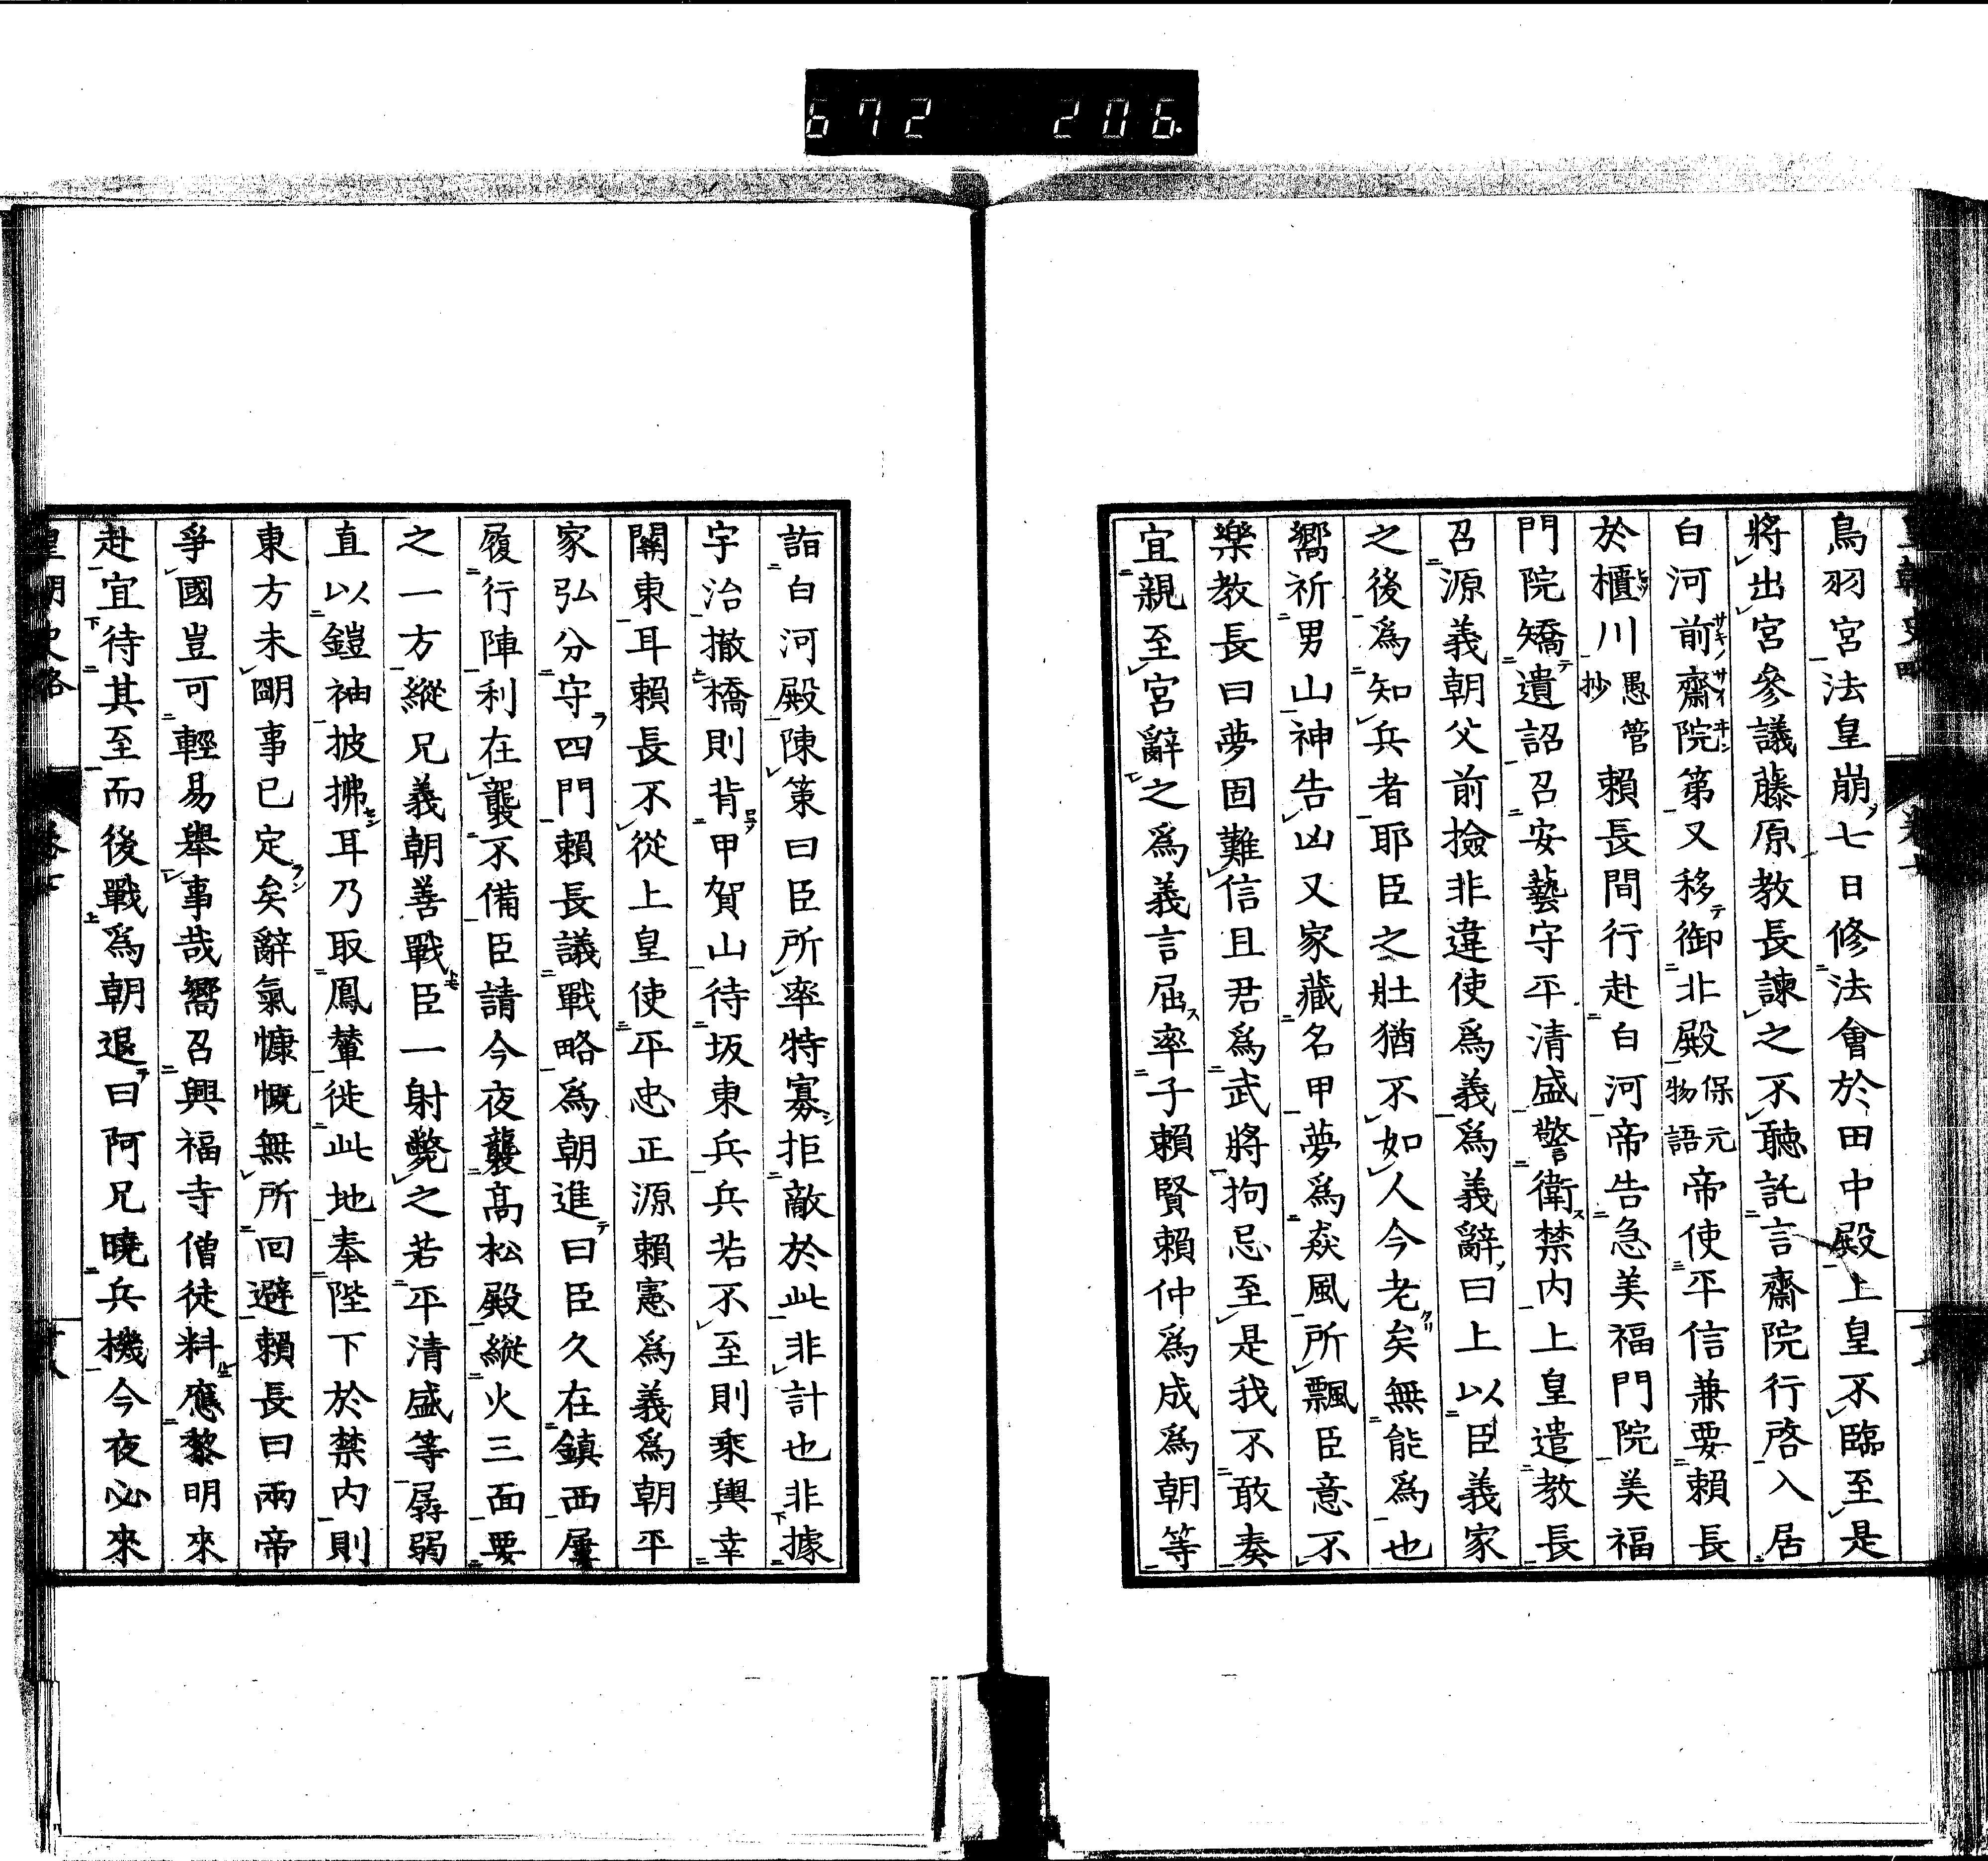 672 206
鳥羽宮法皇崩七日修法會於田中殿上皇不臨至是
將出宮參議藤原教長諫之不聽託言齋院行啓入居
白河前齋院第又移御北殿保元物語帝使平信兼要賴長
於櫃川愚管抄賴長間行赴白河帝告急美福門院美福
門院矯遺詔召安藝守平清盛警衛禁内上皇遣教長
召源義朝父前撿非違使爲義爲義辭曰上以臣義家
之後爲知兵者耶臣之壯猶不如人今老矣無能爲也
嚮祈男山神告凶又家藏名甲夢爲猋風所飄臣意不
樂教長曰夢固難信且君爲武將拘忌至是我不敢奏
宜親至宮辭之爲義言屈率子賴賢賴仲爲成爲朝等
詣白河殿陳策曰臣所率特寡拒敵於此非計也非據
宇治撤橋則背甲賀山待坂東兵兵若不至則乘輿幸
關東耳賴長不從上皇使平忠正源賴憲爲義爲朝平
家弘分守四門賴長議戰略爲朝進曰臣久在鎮西屢
履行陣利在襲不備臣請今夜襲高松殿縱火三面要
之一方縱兄義朝善戰臣一射斃之若平清盛等孱弱
直以鎧袖披拂耳乃取鳳輦徙此地奉陛下於禁内則
東方未明事已定矣辭氣慷慨無所回避賴長曰兩帝
爭國豈可輕易舉事哉嚮召興福寺僧徒料應黎明來
赴宜待其至而後戰爲朝退曰阿兄曉兵機今夜必來